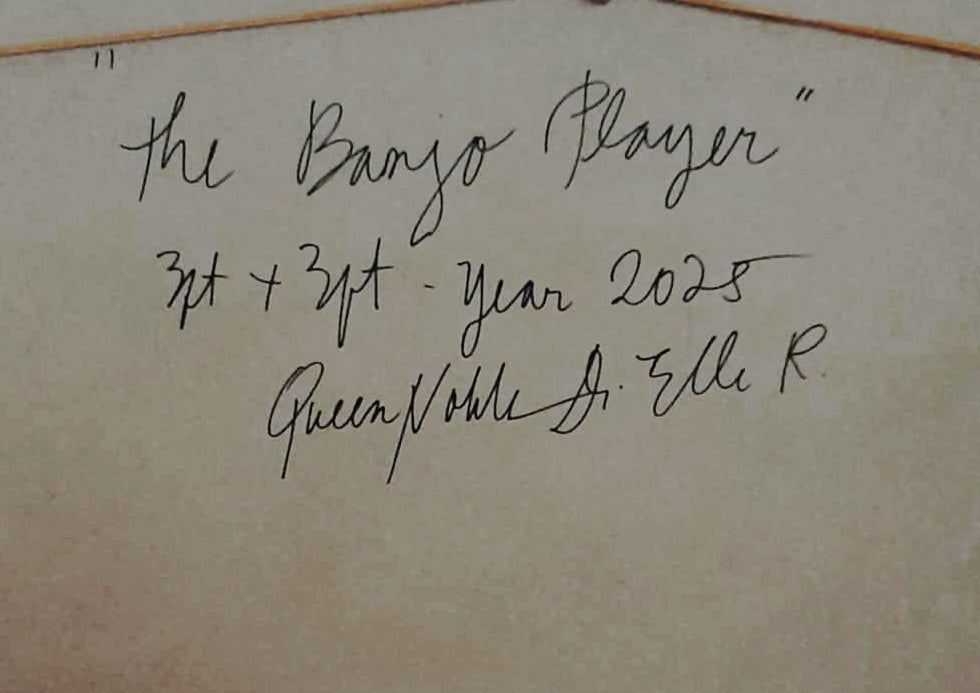 "the Banjo Player"
3pt + 3pt - year 2025
Queen Noble Dr. Elle R.